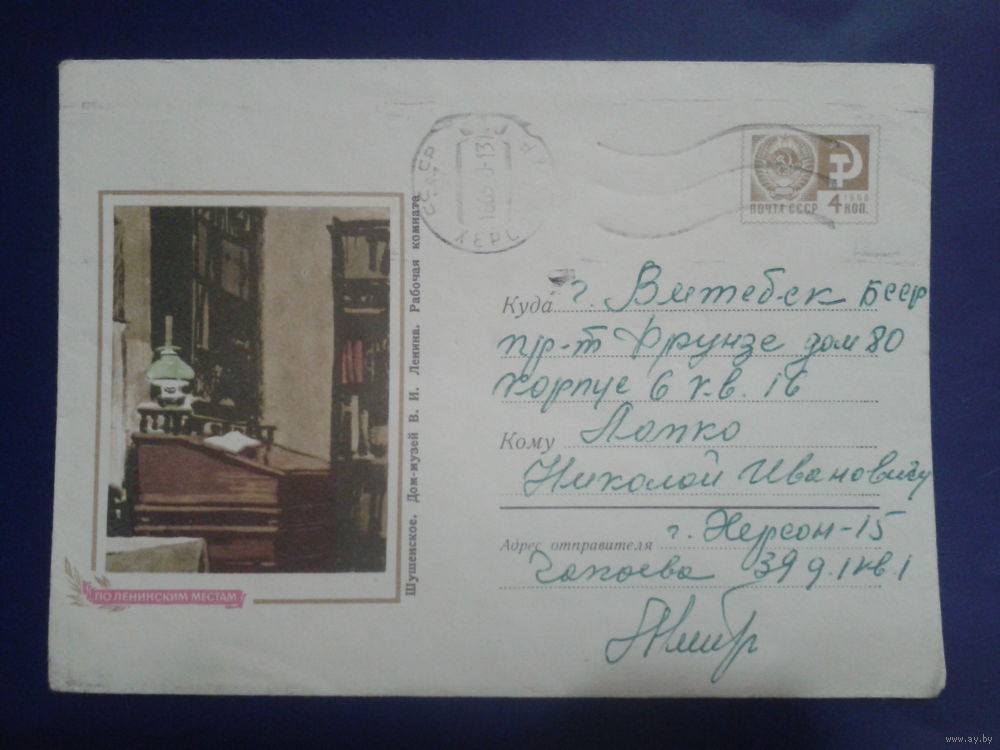 ПОЧТА СССР
1966
4 КОП.
СССР
ХЕРС
Куда г. Витебск БССР
пр-т Фрунзе дом 80
корпус 6 кв. 16
Кому Лапко
Николой Ивановичу
Адрес отправителя г. Херсон-15
Чапаева 39 д. 1 кв. 1
Шушенское. Дом-музей В. И. Ленина. Рабочая комната
ПО ЛЕНИНСКИМ МЕСТАМ
www.ay.by